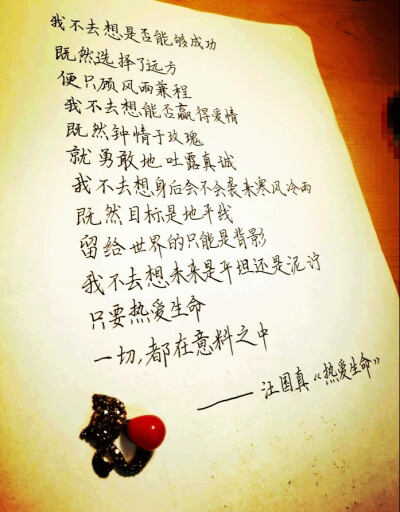 我不去想是否能够成功
既然选择了远方
便只顾风雨兼程
我不去想能否赢得爱情
既然钟情于玫瑰
就勇敢地吐露真诚
我不去想身后会不会袭来寒风冷雨
既然目标是地平线
留给世界的只能是背影
我不去想未来是平坦还是泥泞
只要热爱生命
一切,都在意料之中
——汪国真《热爱生命》